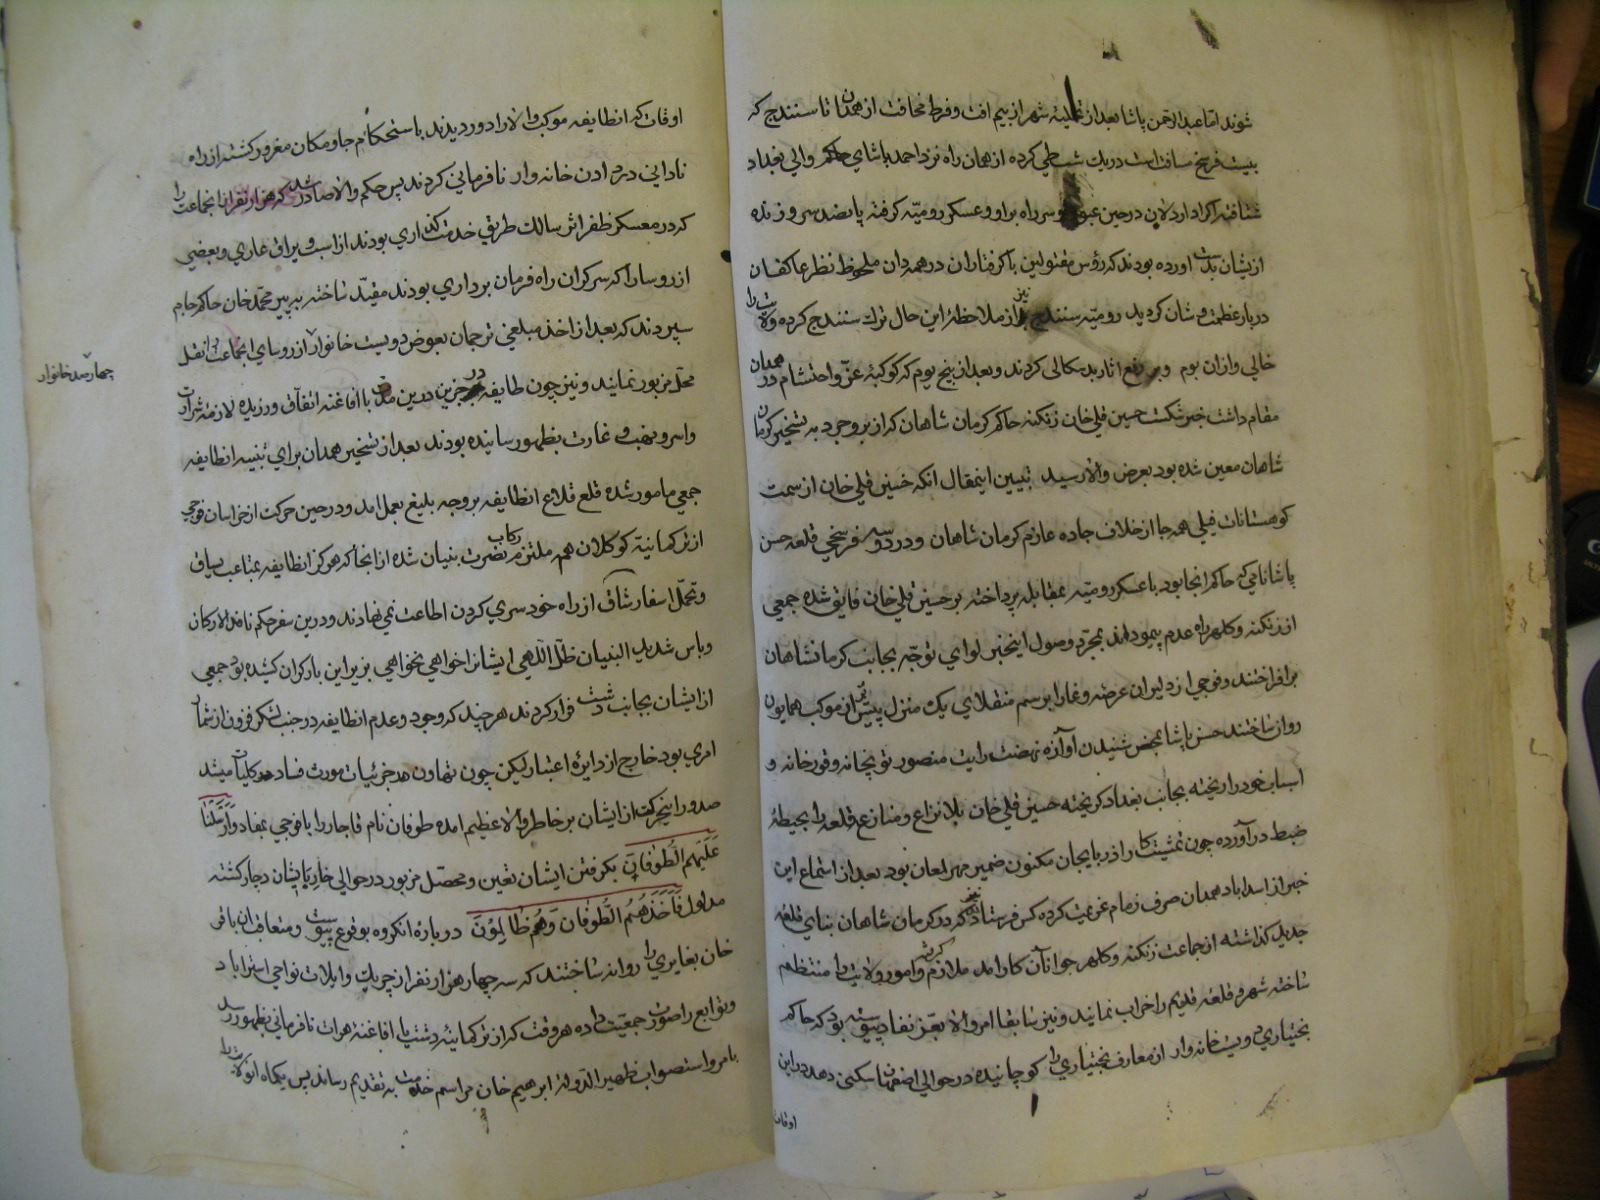 شوند اما عبدالرحمن پاشا بعد از تخلیه شهر از بیم افت و فرط مخافت از همدان تا سنندج که
بیست فرسخ مسافتست در یک شب طی کرده از همان راه نزد احمد پاشای حاکم والی بغداد
شتافته اکراد اردلان در حین عبور او سر راه بر او و عسکر رومیه کرفته پانصد سر و زنده
ازیشان بدست اورده بودند که رؤس مقتولین با کرفتاران در همدان ملحوظ نظر عاکفان
دربار عظمت نشان کردید رومیه سنندج نیز از ملاحظه این حال ترک سنندج کرده ولایت را
خالی و ازان بوم و بر رفع اثار بد سکالی کردند و بعد از پنج یوم که کوکبه عز و احتشام در همدان
مقام داشت خبر شکست حسین قلی خان زنکنه حاکم کرمان شاهان که از بروجرد به تسخیر کرمان
شاهان معین شده بود بعرض والا رسید تبیین اینمقال انکه حسین قلی خان از سمت
کوهستانات فیلی همه جا از خلاف جاده عازم کرمان شاهان و در دو سه فرسخی قلعه حسن
پاشا نامی که حاکم انجا بود با عسکر رومیه بمقابله پرداخته بر حسین قلی خان فایق شده جمعی
از زنکنه و کلهر راه عدم پیمودند بمجرد وصول اینخبر لوای توجه بجانب کرمانشاهان
برافراختند و فوجی از دلیران عرصه وغا را برسم منقلای یک منزل پیشتر از موکب همایون
روان ساختند حسن پاشا بمحض شنیدن آوازه نهضت رایت منصور توپخانه و قورخانه و
اسباب خود را ریخته بجانب بغداد کریخته حسین قلی خان بلا نزاع و منازع قلعه را بحیطه
ضبط در آورده چون تمشیت کار اذربایجان مکنون ضمیر مهر لمعان بود بعد از استماع این
خبر از اسداباد همدان صرف زمام عزیمت کرده کس فرستادند که در کرمان شاهان بنای قلعه
جدید کذاشته از جماعت زنکنه و کلهر جوانان کارامد ملازم کرفته و امور ولایت را منتظم
ساخته شهر و قلعه قدیم را خراب نمایند و نیز سابقا امر والا بعز نفاد پیوسته بود که حاکم
بختیاری دویست خانه وار از معارف بختیاری را کوچانیده در حوالی اصفهان سکنی دهد در این
اوقات
اوقات که انطایفه موکب والا را دور دیدند باستحکام جا و مکان مغرور کشته از راه
نادانی در دادن خانه وار نافرمانی کردند پس حکم والا صادر شد که هزار نفر از انجماعت را
که در معسکر ظفر اثر سالک طریق خدمت کذاری بودند از اسب و یراق عاری و بعضی
از روسا را که سرکران راه فرمان برداری بودند مقید ساخته به پیر محمد خان حاکم جام
سپردند که بعد از اخذ مبلغی ترجمان بعوض دویست خانوار از روسای انجماعت را نقل
چهار صد خانوار
محل مزبور نمایند و نیز چون طایفه در جزین درین مدت با افاغنه اتفاق ورزیده لازمه شرارت
و اسر و نهب و غارت بظهور رسانیده بودند بعد از تسخیر همدان برای تنبیه انطایفه
جمعی مامور شده قلع قلاع انطایفه بر وجه بلیغ بعمل امد و در حین حرکت از خراسان فوجی
از ترکمانیه کوکلان هم ملتزم رکاب نصرت بنیان شده از انجا که هرکز انطایفه بمتاعب یساق
و تحمل اسفار شاق از راه خود سری کردن اطاعت نمی نهادند و درین سفر حکم نافذ الارکان
و باس شدید البنیان ظل اللهی ایشانرا خواهی نخواهی بزیر این بار کران کشیده بود جمعی
از ایشان بجانب دشت فرار کردند هر چند که وجود و عدم انطایفه در جنب لشکر فزون از شمار
امری بود خارج از دایره اعتبار لیکن چون تهاون در جزئیات مورث فساد در کلیات میشد
صدور اینحرکت از ایشان بر خاطر والا عظیم امده طوفان نام قاجار را با فوجی بمفاد وَأَرْسَلْنَا
عَلَيْهِمُ الطُّوفَانَ بکرفتن ایشان تعیین و محصل مزبور در حوالی خار بایشان دچار کشته
مدلول فَأَخَذَهُمُ الطُّوفَانُ وَهُمْ ظَالِمُونَ درباره انکروه بوقوع پیوست و متعاقب ان باقر
خان بغایری را روانه ساختند که سه چهار هزار نفر از چریک و ایلات نواحی استراباد
و توابع را صورت جمعیت داده هر وقت که از ترکمانیه دشت یا افاغنه هرات نافرمانی بظهور رسد
بامر و استصواب ظهیر الدوله ابرهیم خان مراسم خدمت به تقدیم رساند پس یکماه